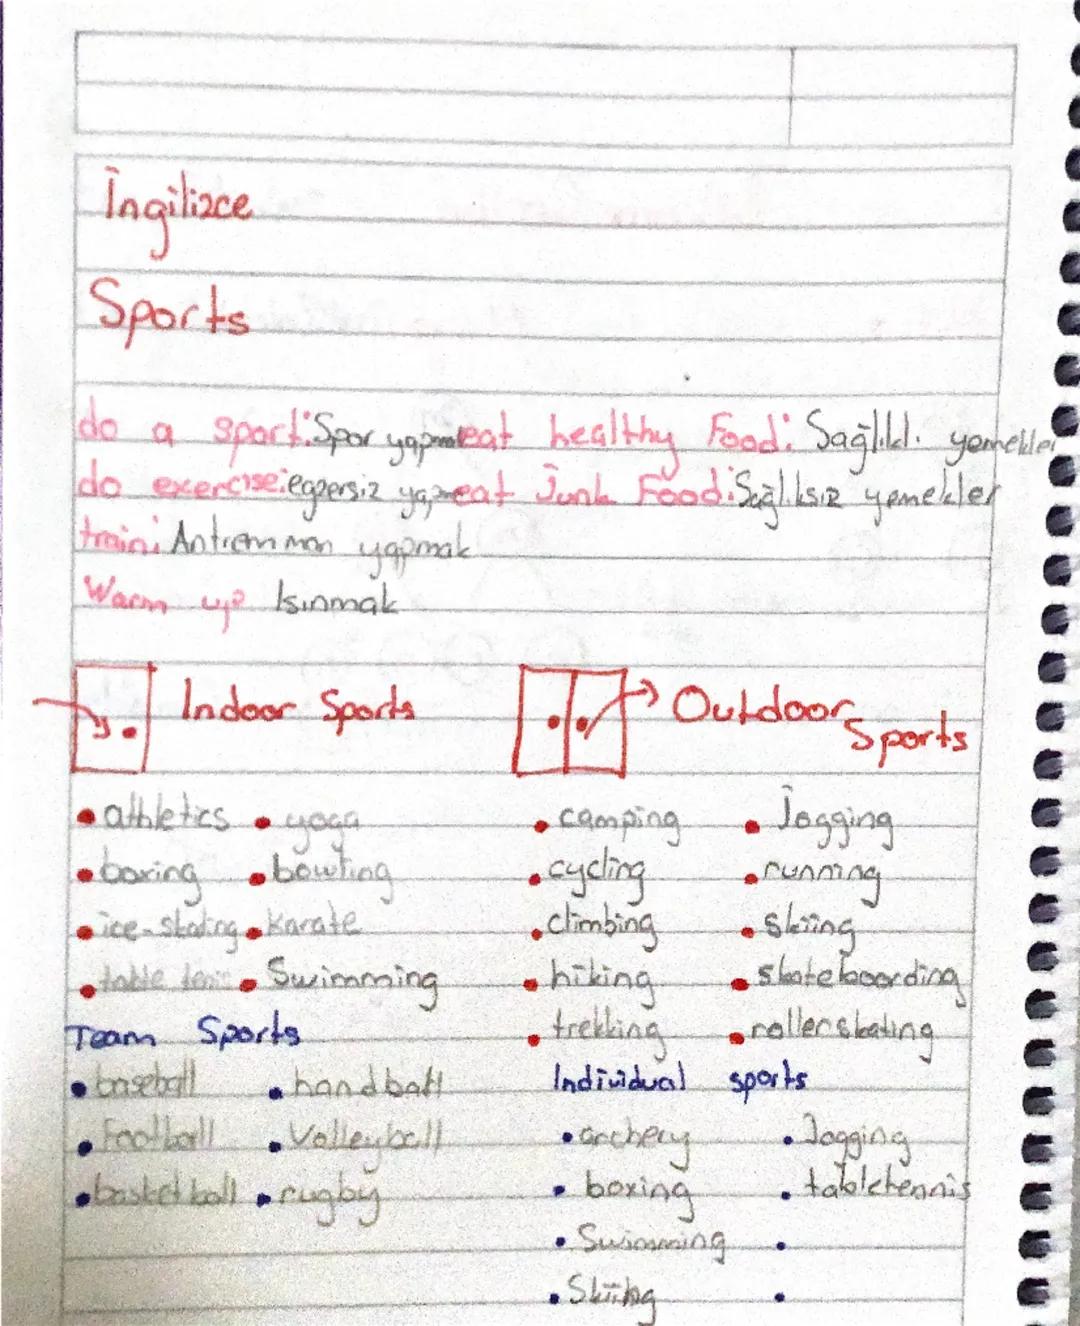 İngilizce
Sports
do a sport: Spor yapmak eat healthy Food: Sağlıklı yemekler
do exercise: egzersiz yapmak eat Junk Food: Sağlıksız yemekler
train: Antremman yapmak
Warm up Isınmak
Indoor Sports Outdoor Sports
• athletics • yoga • camping • Jogging
• boxing • bowling • cycling • running
• ice-skating • karate • climbing • skiing
• table • Swimming • hiking • skateboarding
Team Sports • trekking • rollerskating
• baseball • handball Individual sports
• Football • Volleyball • archery • Jogging
• basketball • rugby • boxing • tabletennis
• Swimming •
• Skiing •